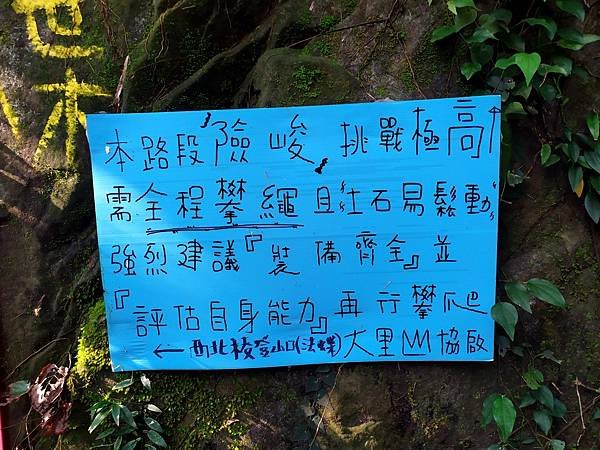 本路段險峻 挑戰極高↑
需全程攀繩且壯石易鬆動
強烈建議『裝備齊全』並
『評估自身能力』再行攀爬
← 西北稜登山口(法蝶) 大里山協啟